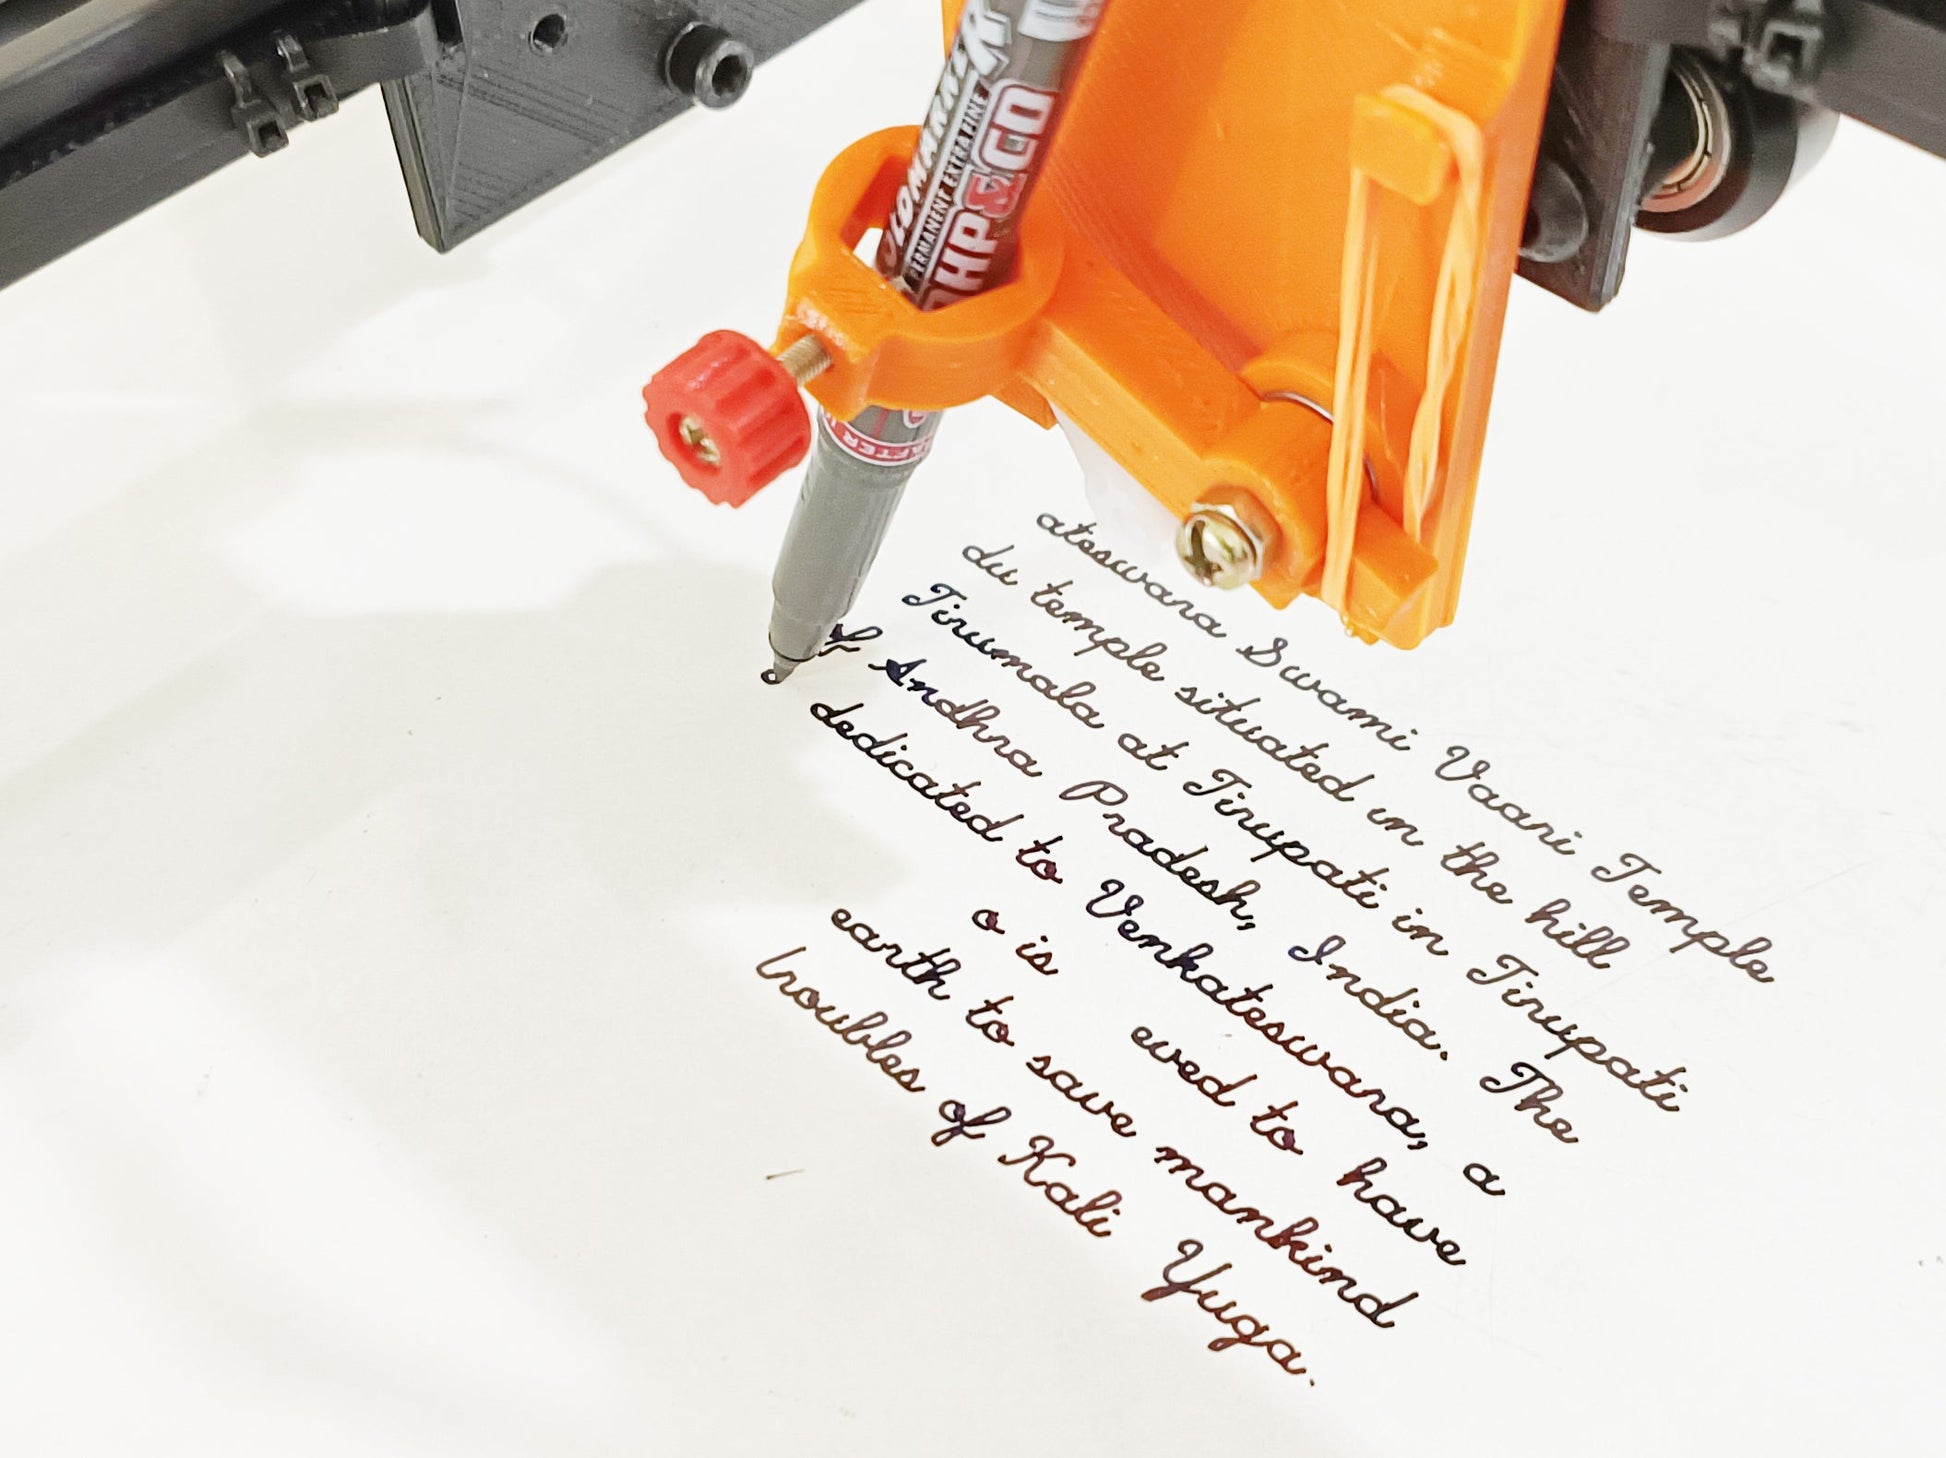 OHP&CD
PERMANENT EXTRA FINE
AFTER
ateswara Swami Vaari Temple
du temple situated in the hill
Tirumala at Tirupati in Tirupati
of Andhra Pradesh, India. The
dedicated to Venkateswara, a
o is eved to have
earth to save mankind
troubles of Kali Yuga.